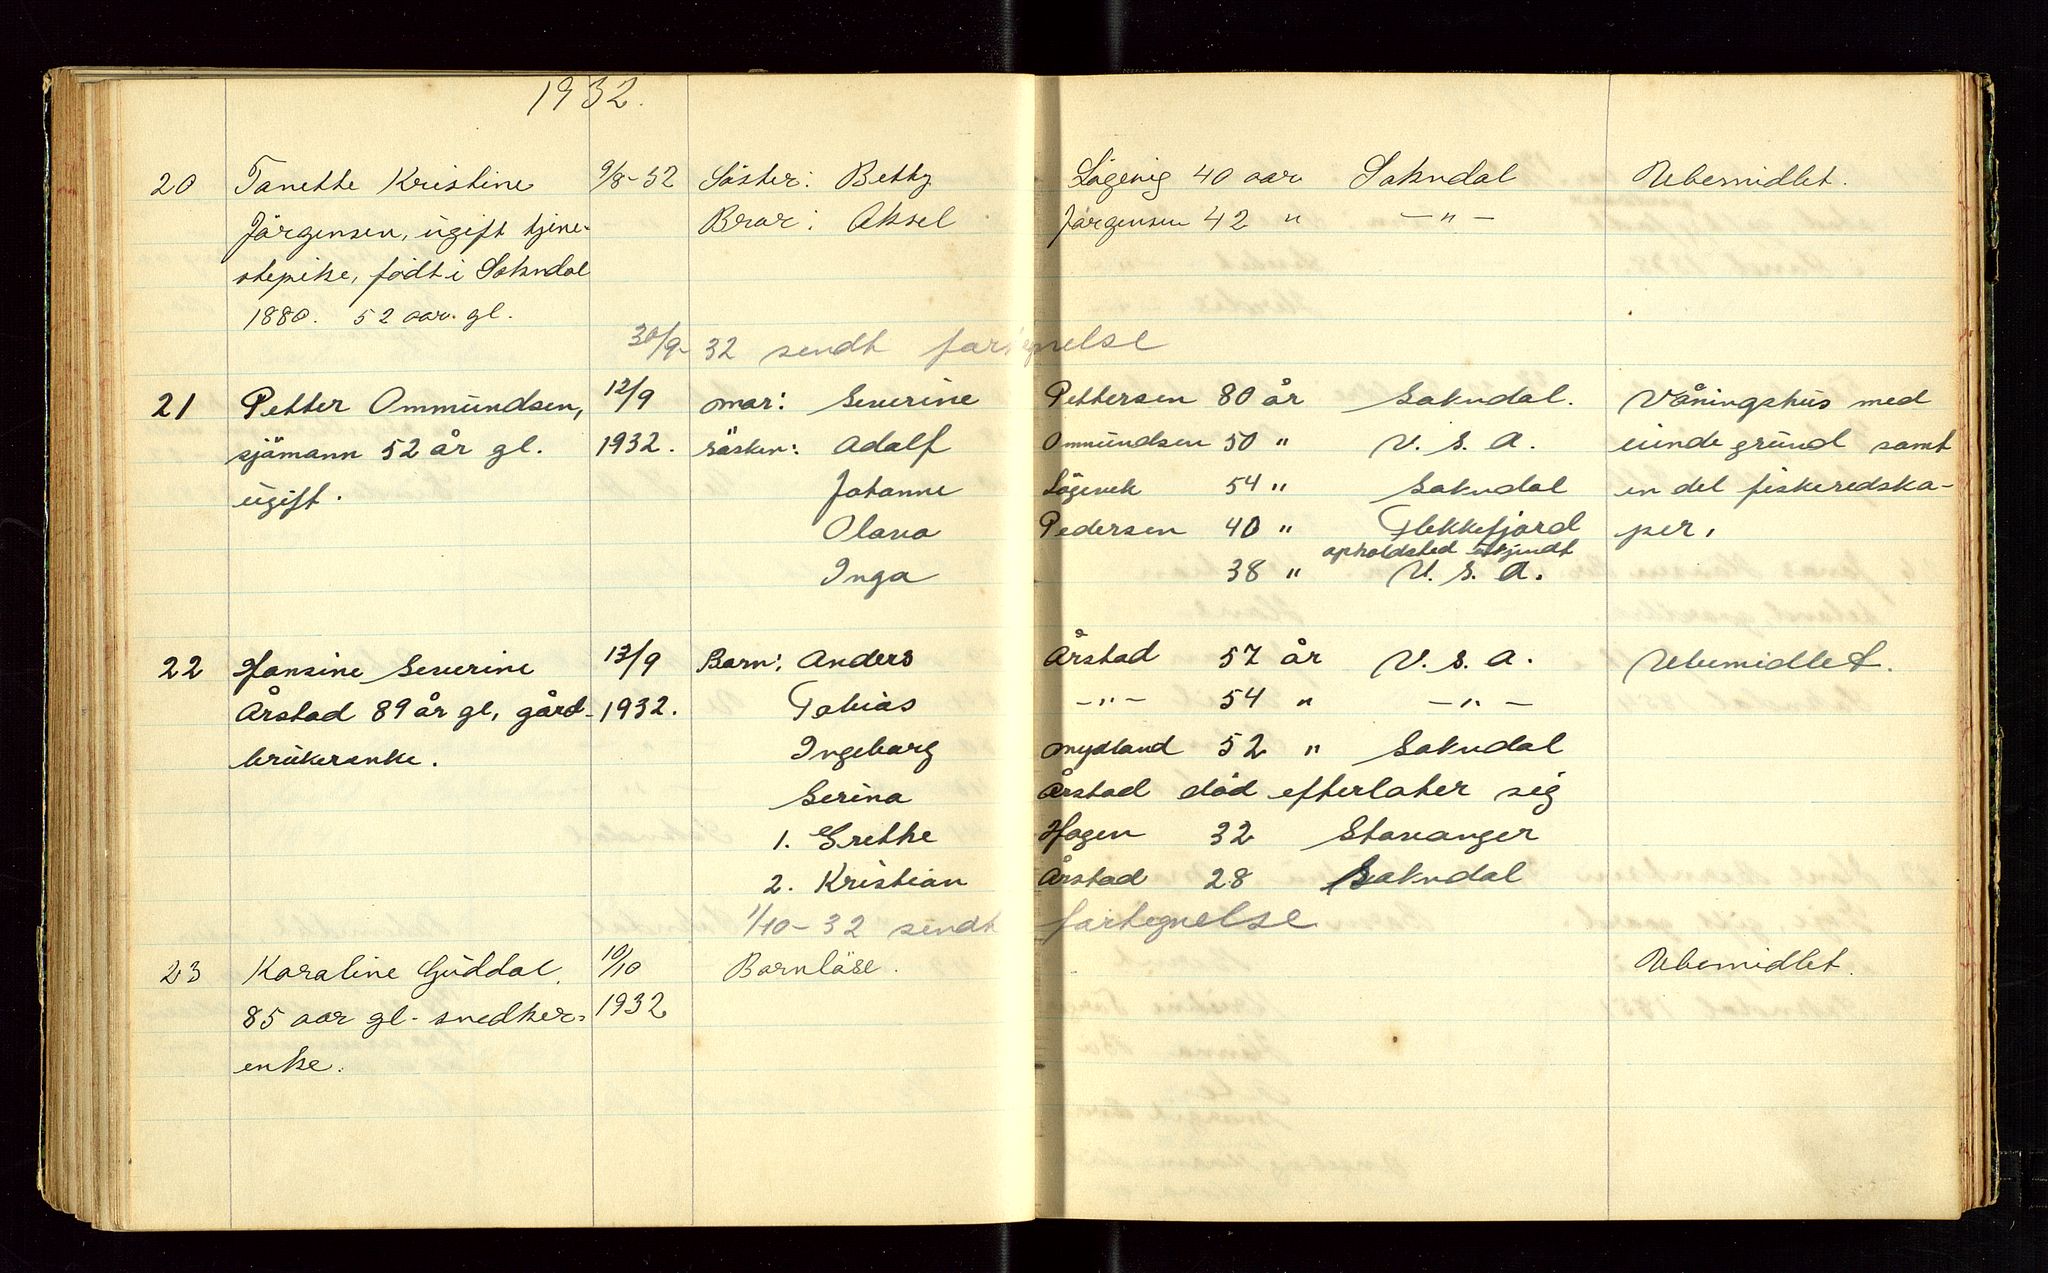 1932.
20 Tanette Kristine 9/8-32 Söster: Betty Lögevig 40 aar Sokndal Ubemidlet.
Jörgensen, ugift tjene- Bror: Aksel Jörgensen 42 " — " —
stepike, född i Sokndal
1880. 52 aar. gl.
30/9-32 sendt fortegnelse
21 Petter Ommundsen, 12/9 mor: Severine Pettersen 80 år Sokndal. Våningshus med
sjömann 52 år gl. 1932. sösken: Adolf Ommundsen 50 " U. S. A. grund samt
ugift. Johanne Lögevik 54 " Sokndal en del fiskeredska-
Olava Pedersen 40 " Flekkefjord per.
opholdsted ukjendt
Inga 38 " U. S. A.
22 Hansine Severine 13/9 Barn: Anders Årstad 57 år U. S. A. Ubemidlet.
Årstad 89 år gl, gård- 1932. Tobias — " — 54 " — " —
brukerenke. Ingeborg Mydland 52 " Sokndal
Serina Årstad död efterlater sig
1. Grethe Hagen 32 Stavanger
2. Kristian Årstad 28 Sokndal
1/10-32 sendt fortegnelse
23 Karoline Guddal, 10/10 Barnlöse. Ubemidlet.
85 aar gl. snedker- 1932
enke.